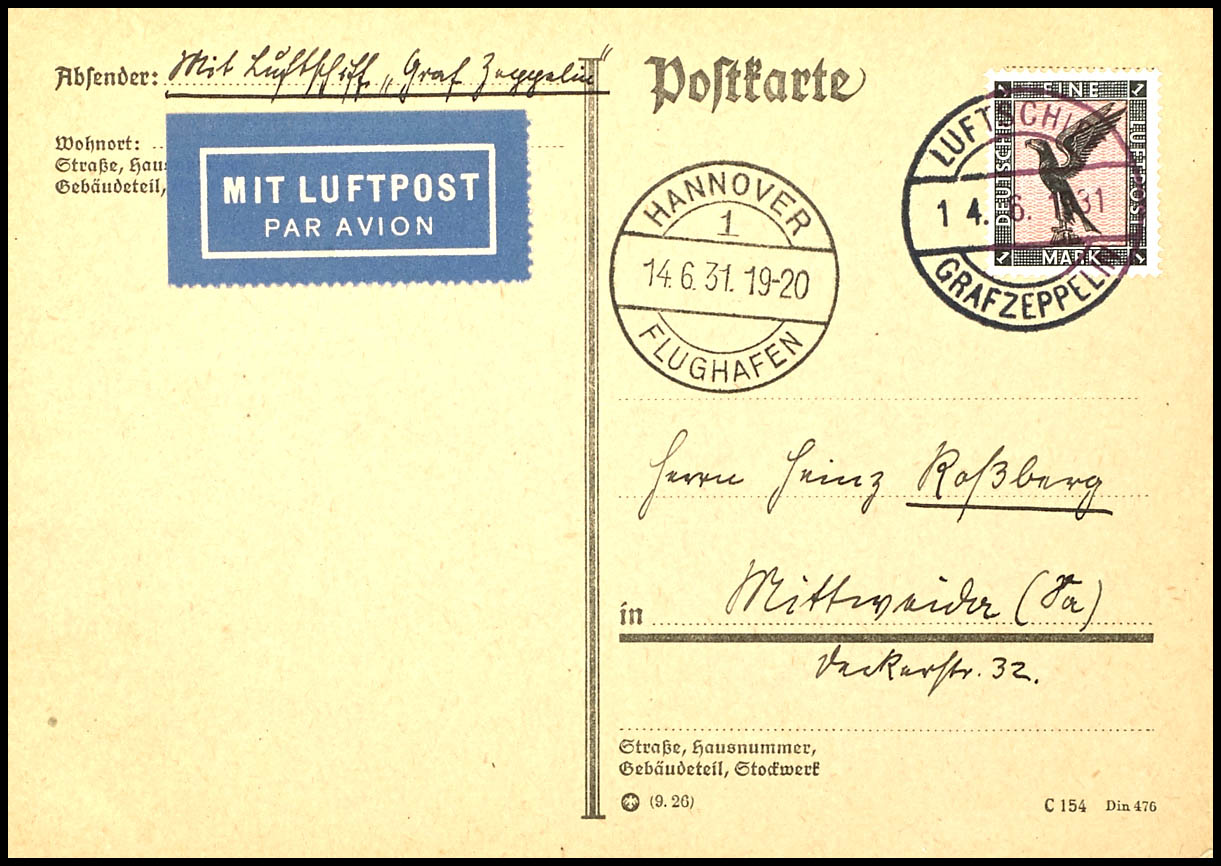 Absender: Mit Luftschiff „Graf Zeppelin“
Wohnort:
Straße, Hau
Gebäudeteil,
MIT LUFTPOST
PAR AVION
Postkarte
HANNOVER
1
14.6.31. 19-20
FLUGHAFEN
EINE
DEUTSCHE
LUFTPOST
MARK
LUFTSCHI
1 4. 6. 1 31
GRAFZEPPELIN
Herrn Heinz Roßberg
in Mittweida (Sa)
Deckerstr. 32.
Straße, Hausnummer,
Gebäudeteil, Stockwerk
(9. 26)
C 154 Din 476